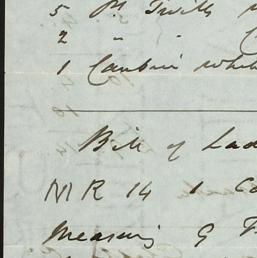 5 Ps Twills
2 " "
1 Cambric whi
Bill of Lad
MR 14 1 Ca
Measuring 9 F